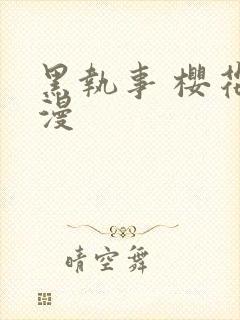 黑執事 櫻花
漫
晴空舞